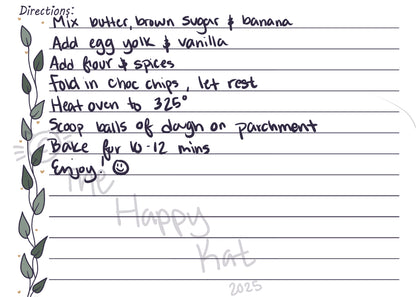 Directions:
Mix butter, brown sugar & banana
Add egg yolk & vanilla
Add flour & spices
Fold in choc chips, let rest
Heat oven to 325°
Scoop balls of dough on parchment
Bake for 10-12 mins
Enjoy! ☺
The
Happy
Kat
2025